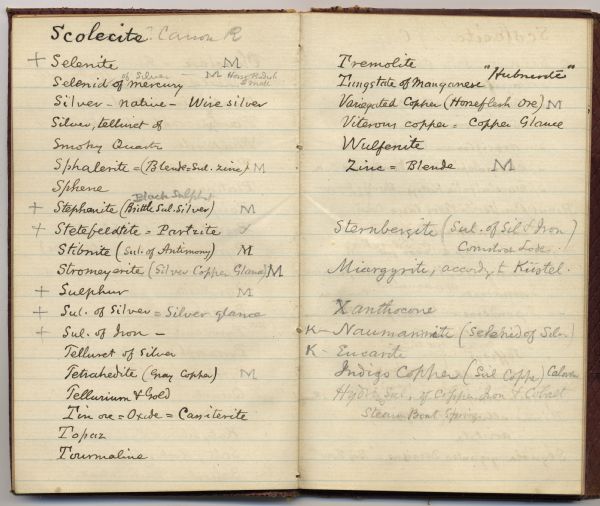 Scolecite Carson R
+ Selenite M
of Silver M Horse Radish Small
Selenid of mercury
Silver - native - Wire silver
Silver, telluret of
Smoky Quartz
Sphalerite = (Blende = Sul. zinc) M
Sphene
Black Sulpht
+ Stephanite (Brittle Sul. Silver) M
+ Stetefeldtite = Partzite
Stibnite (Sul. of Antimony) M
Stromeyerite (Silver Copper Glance) M
+ Sulphur M
+ Sul. of Silver = Silver glance
+ Sul. of Iron -
Telluret of Silver
Tetrahedite (Gray Copper) M
Tellurium & Gold
Tin ore = Oxide = Cassiterite
Topaz
Tourmaline
Tremolite
Tungstate of Manganese "Hubnerite"
Variegated Copper (Horseflesh ore) M
Viterous copper = Copper Glance
Wulfenite
Zinc = Blende M
Sternbergite (Sul. of Sil & Iron)
Comstock Lode.
Miargyrite, accordg t Küstel.
Xanthocone
K - Naumannite (Selenid of Silv)
K - Eucarite
Indigo Copper (Sul Copp)
Hydro Sul. of Copper Iron & Cobalt
Steam Boat Springs